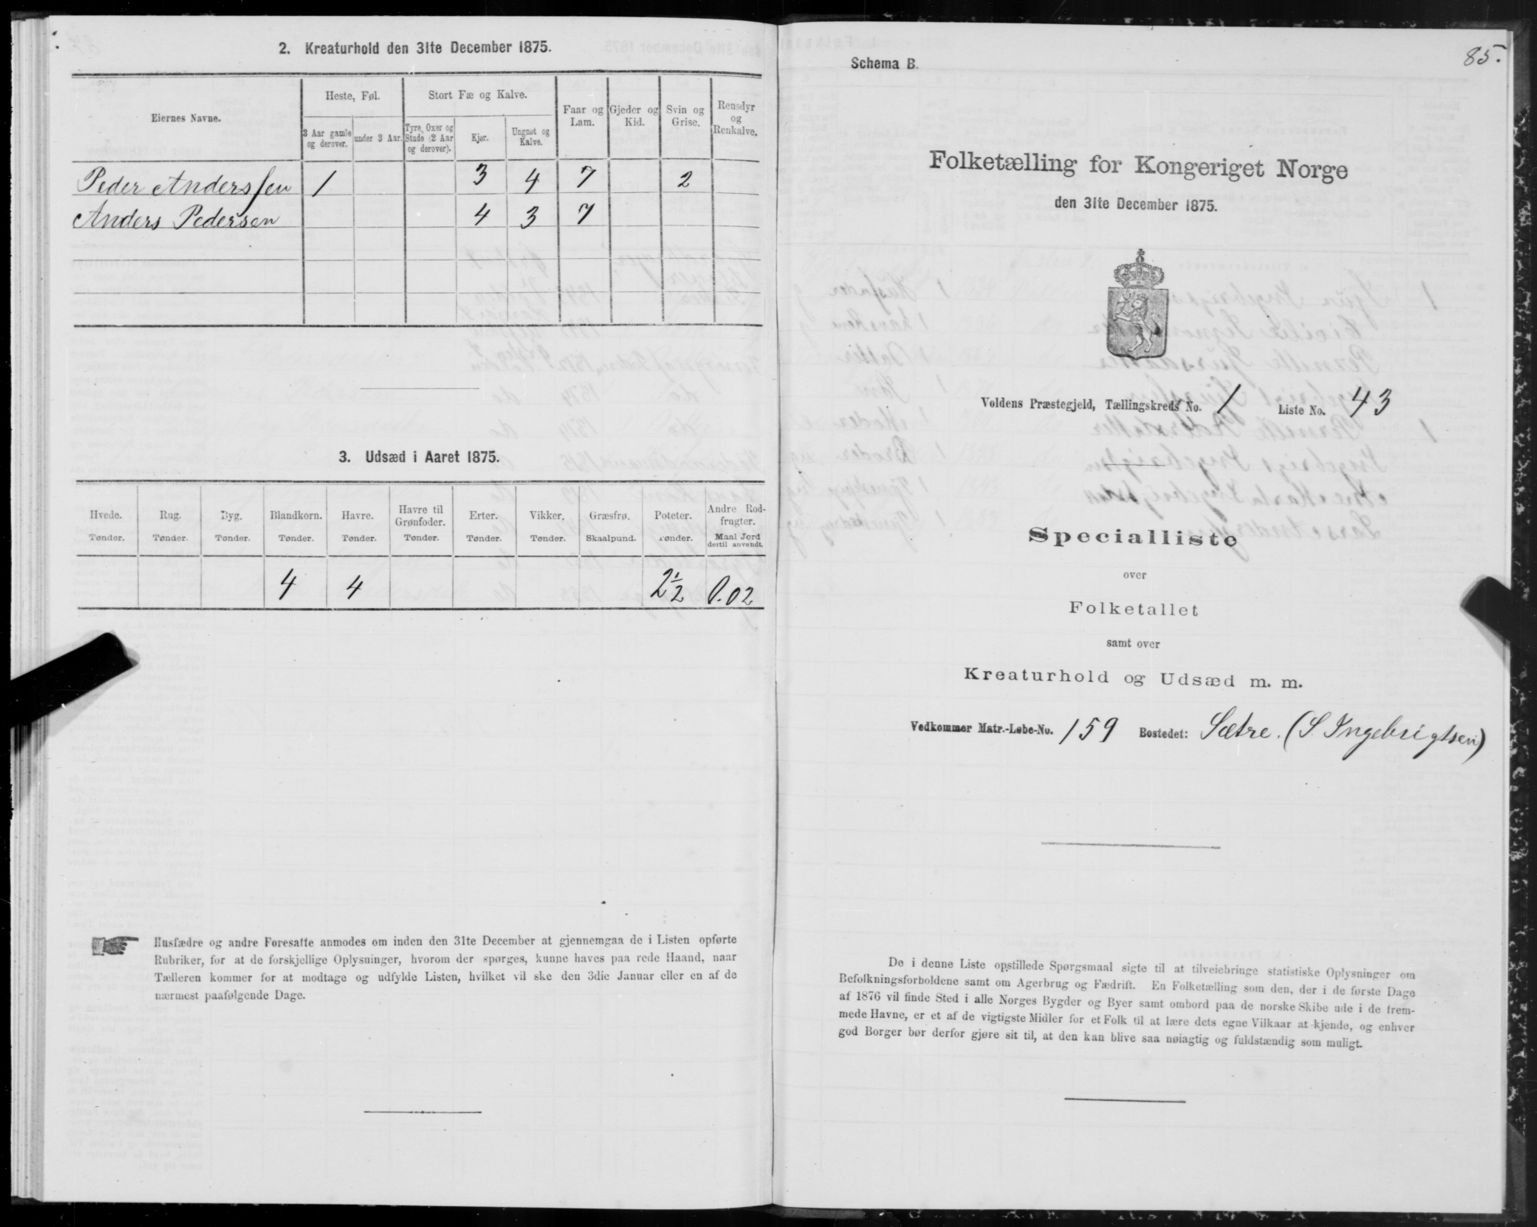 2. Kreaturhold den 31te December 1875.
Eiernes Navne.
Heste, Føl.
Stort Fæ og Kalve.
Faar og Lam.
Gjeder og Kid.
Svin og Grise.
Rensdyr og Renkalve.
3 Aar gamle og derover.
under 3 Aar.
Tyre, Oxer og Stude (2 Aar og derover).
Kjør.
Ungnøt og Kalve.
Peder Anderssen 1 3 4 7 2
Anders Pedersen 4 3 7
3. Udsæd i Aaret 1875.
Hvede. Rug. Byg. Blandkorn. Havre. Havre til Grønfoder. Erter. Vikker. Græsfrø. Poteter. Andre Rodfrugter.
Tønder. Tønder. Tønder. Tønder. Tønder. Tønder. Tønder. Tønder. Skaalpund. Tønder. Maal Jord dertil anvendt.
4 4 2 1/2 0.02
Husfædre og andre Foresatte anmodes om inden den 31te December at gjennemgaa de i Listen opførte
Rubriker, for at de forskjellige Oplysninger, hvorom der spørges, kunne haves paa rede Haand, naar
Tælleren kommer for at modtage og udfylde Listen, hvilket vil ske den 3die Januar eller en af de
nærmest paafølgende Dage.
85.
Schema B.
Folketælling for Kongeriget Norge
den 31te December 1875.
Voldens Præstegjeld, Tællingskreds No. 1 Liste No. 43
Specialliste
over
Folketallet
samt over
Kreaturhold og Udsæd m. m.
Vedkommer Matr.-Løbe-No. 159 Bostedet: Sætre. (S Ingebrigtsen)
De i denne Liste opstillede Spørgsmaal sigte til at tilveiebringe statistiske Oplysninger om
Befolkningsforholdene samt om Agerbrug og Fædrift. En Folketælling som den, der i de første Dage
af 1876 vil finde Sted i alle Norges Bygder og Byer samt ombord paa de norske Skibe ude i de frem-
mede Havne, er et af de vigtigste Midler for et Folk til at lære dets egne Vilkaar at kjende, og enhver
god Borger bør derfor gjøre sit til, at den kan blive saa nøiagtig og fuldstændig som muligt.